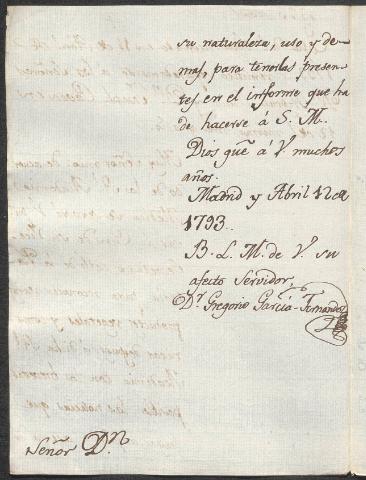 su naturaleza, uso y de-
mas, para tenerlas presen-
tes en el informe que ha
de hacerse á S. M.
Dios gue á V. muchos
años.
Madrid y Abril 12 de
1793.
B. L. M. de V. su
afecto Servidor,
Dr. Gregorio García-Fernandez
Señor Dn